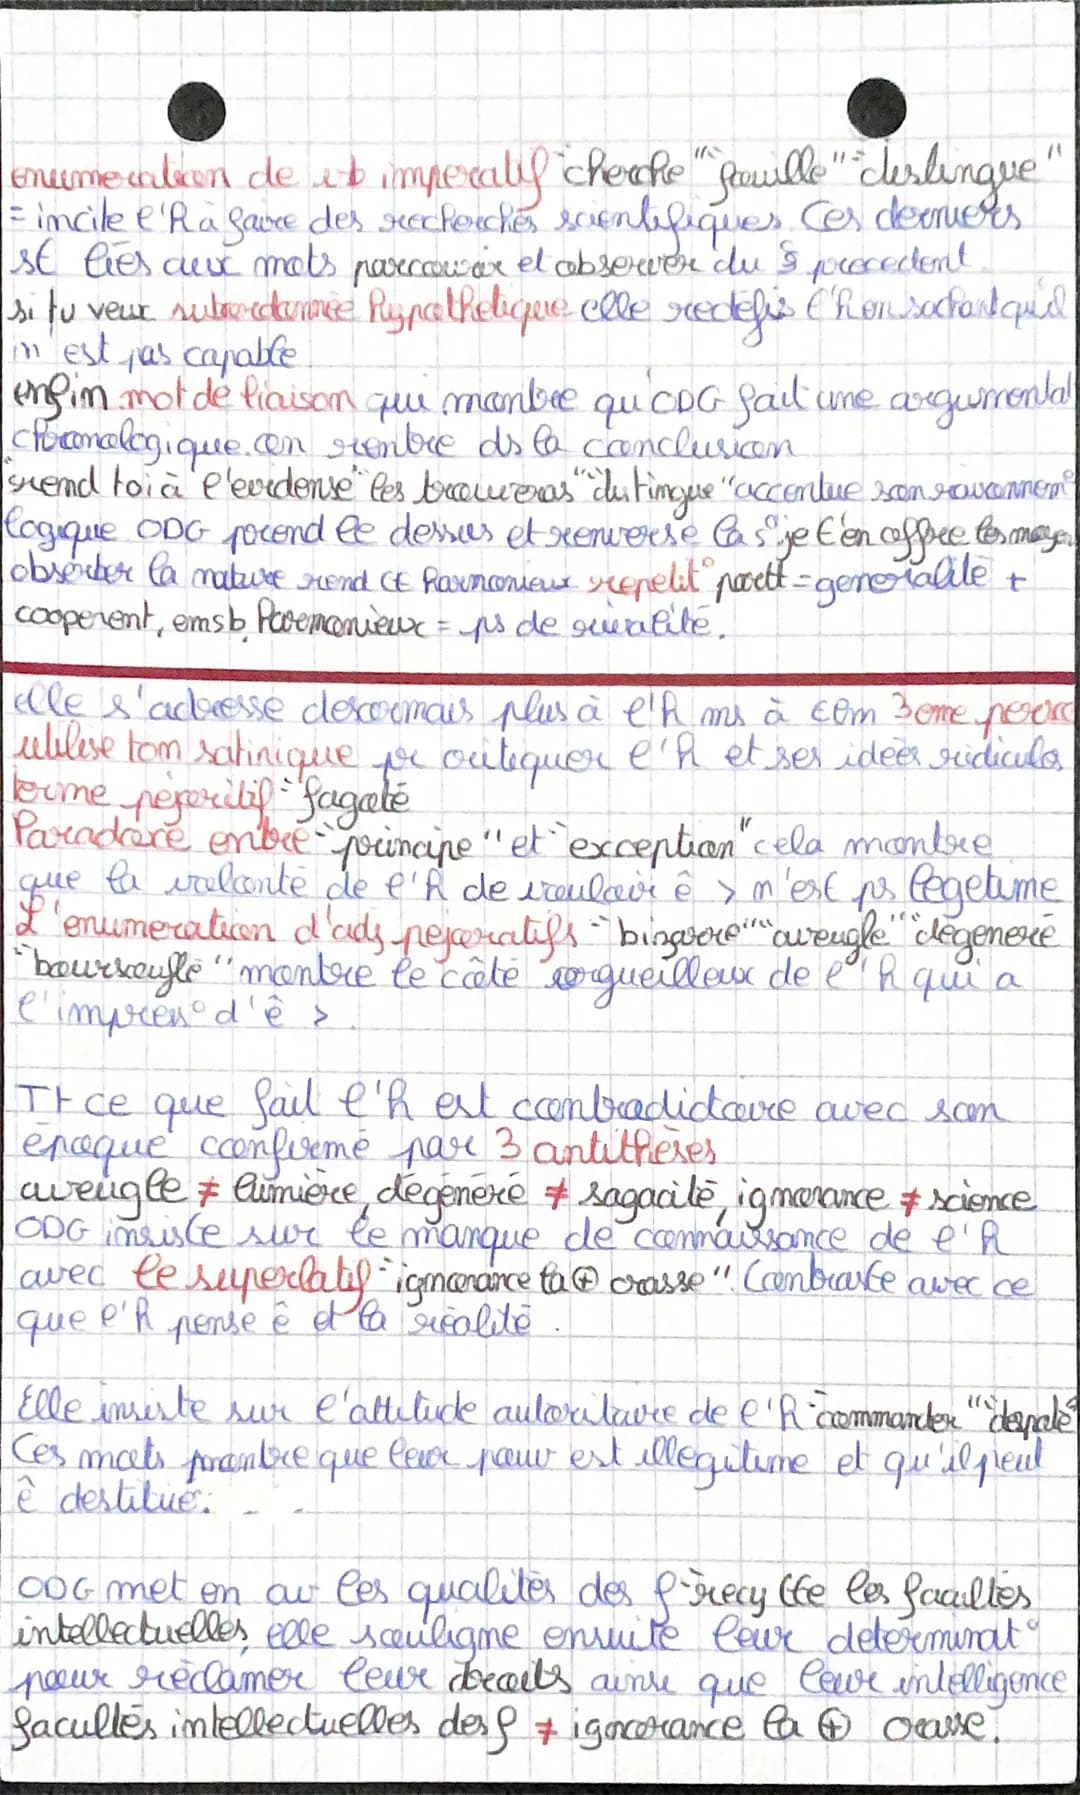 enumeration de vb imperatif "cherche" "fouille" "distingue"
= incite l'h à faire des recherches scientifiques. Ces derniers
st liés aux mots parcourir et observer du § precedent.
si tu veux subordonnée hypothetique elle redéfis l'h en sachant qu'il
n'est pas capable
enfin mot de liaison qui montre qu'ODG fait une argumentat
chronologique. on rentre ds la conclusion
"rend toi à l'evidense" les trouveras" "distingue" accentue son raisonnem
logique ODG prend le dessus et renverse la s° je t'en offre les moyen
observer la nature rend ct harmonieux repetit° partt = generalité +
cooperent, emsb, harmonieux = ps de rivalité.
elle s'adresse desormais plus à l'h ms à com 3eme pers
utilise ton satirique pr critiquer l'h et ses idées ridicules
terme péjoritif = fagoté
Paradoxe entre "principe" et "exception" cela montre
que la volonté de l'h de vouloir ê > n'est ps legetime
L'enumeration d'adj pejoratifs "bizarre" "aveugle" "degeneré
"boursouflé" montre le côté orgueilleux de l'h qui a
l'impress° d'ê >.
Tt ce que fait l'h est contradictoire avec son
époque confirmé par 3 antithèses
aveugle ≠ lumière, dégénéré ≠ sagacité, ignorance ≠ science
ODG insiste sur le manque de connaissance de l'h
avec le superlatif "ignorance la ⊕ crasse". Contraste avec ce
que l'h pense ê et la réalité.
Elle insiste sur l'attitude autoritaire de l'h "commander" "despote"
Ces mots montre que leur pouv est illegitime et qu'il peut
ê destitué.
ODG met en av les qualités des f-recy tte les facultés
intellectuelles, elle souligne ensuite leur determinat°
pour réclamer leur droits ainsi que leur intelligence
facultés intellectuelles des f ≠ ignorance la ⊕ crasse.